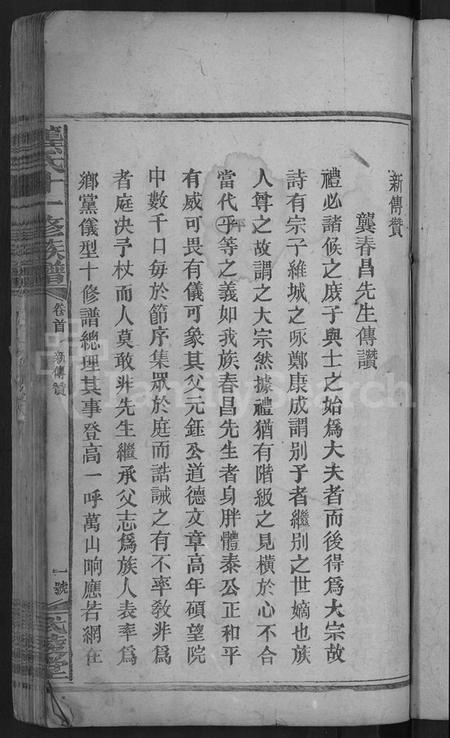 新傳贊
龔春昌先生傳讚
禮必諸候之庶子與士之始爲大夫者而後得爲大宗故
詩有宗子維城之咏鄭康成謂別子者繼別之世嫡也族
人尊之故謂之大宗然據禮猶有階級之見橫於心不合
當代平等之義如我族春昌先生者身胖體泰公正和平
有威可畏有儀可象其父元鈺公道德文章高年碩望院
中數千口每於節序集眾於庭而誥誡之有不率敎非爲
者庭決予杖而人莫敢非先生繼承父志爲族人表率爲
鄉黨儀型十修譜總理其事登高一呼萬山响應若網在
龔氏十一修族譜
卷首
新傳贊
一號
FamilySearch